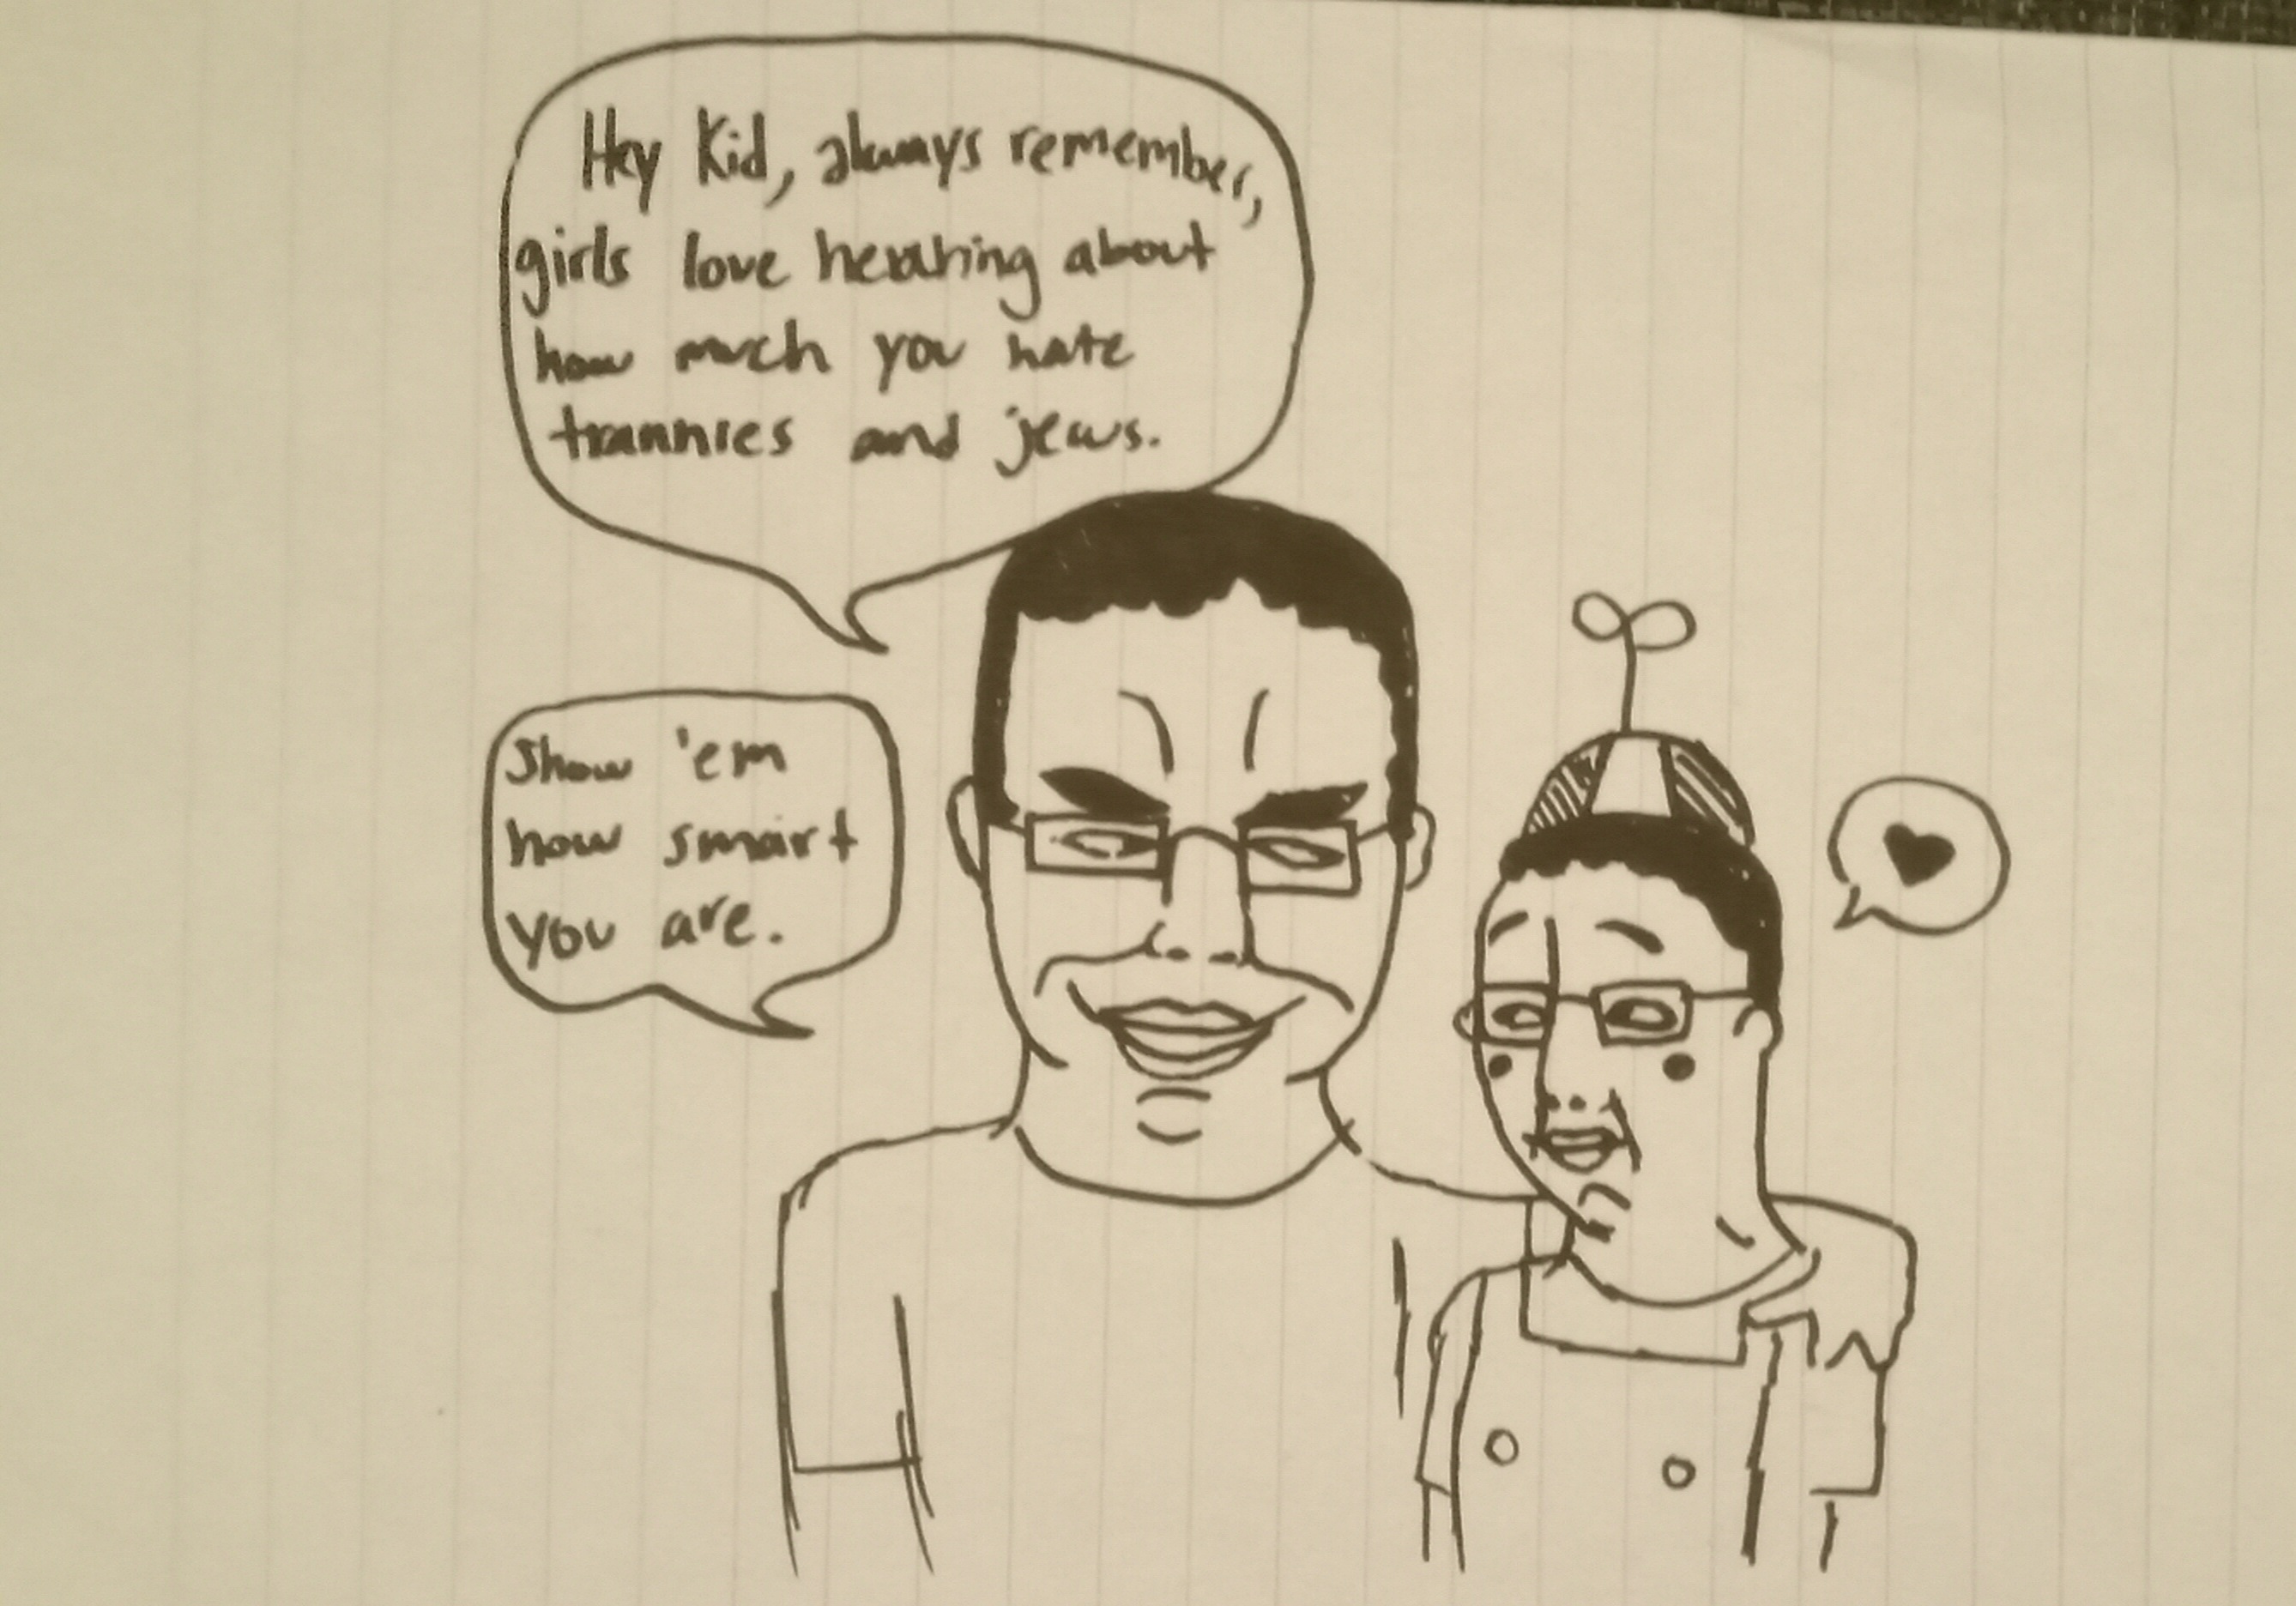 Hey Kid, always remember,
girls love hearing about
how much you hate
trannies and jews.
Show 'em
how smart
you are.